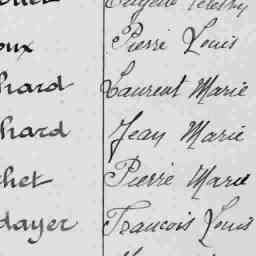 oux Pierre Louis
hard Laurent Marie
hard Jean Marie
chet Pierre Marie
dayer Francois Louis